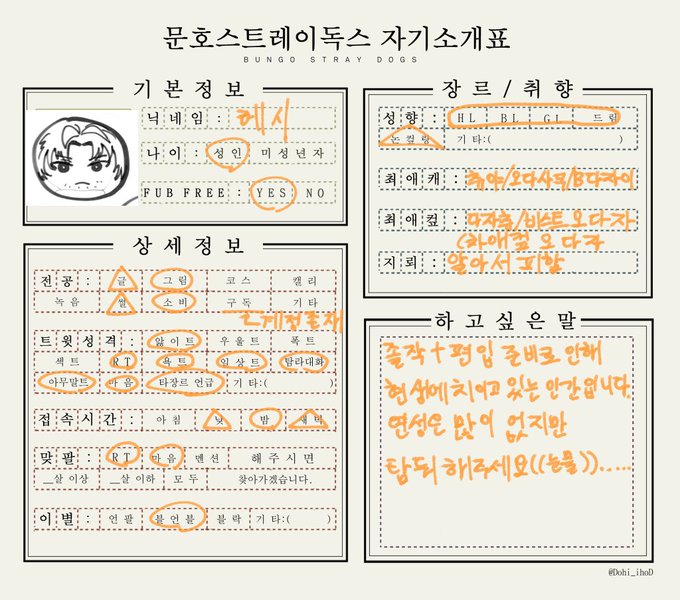 문호스트레이독스 자기소개표
BUNGO STRAY DOGS
기본정보
닉네임: 헤시
나이: 성인 미성년자
FUB FREE: YES NO
상세정보
전공: 글 그림 코스 캘리
녹음 썰 소비 구독 기타
트윗성격: 앓이트 우울트 폭트
섹트 RT 욕트 일상트 탐라대화
아무말트 마음 타장르 언급 기타:( )
접속시간: 아침 낮 밤 새벽
맞팔: RT 마음 멘션 해주시면
__살 이상 __살 이하 모두 찾아가겠습니다.
이별: 언팔 블언블 블락 기타:( )
장르/취향
성향: HL BL GL 드림
논컬링 기타:( )
최애캐: 츄야/오다사쿠/B다자이
최애컾: 다자츄/비스트 오다자
(차애컾 오다자
지뢰: 알아서 피함
하고싶은말
졸작+편입 준비로 인해
현생에 치이고 있는 인간입니다.
연성은 많이 없지만
탐퇴 해주세요((눈물)).....
@Dohi_ihoD